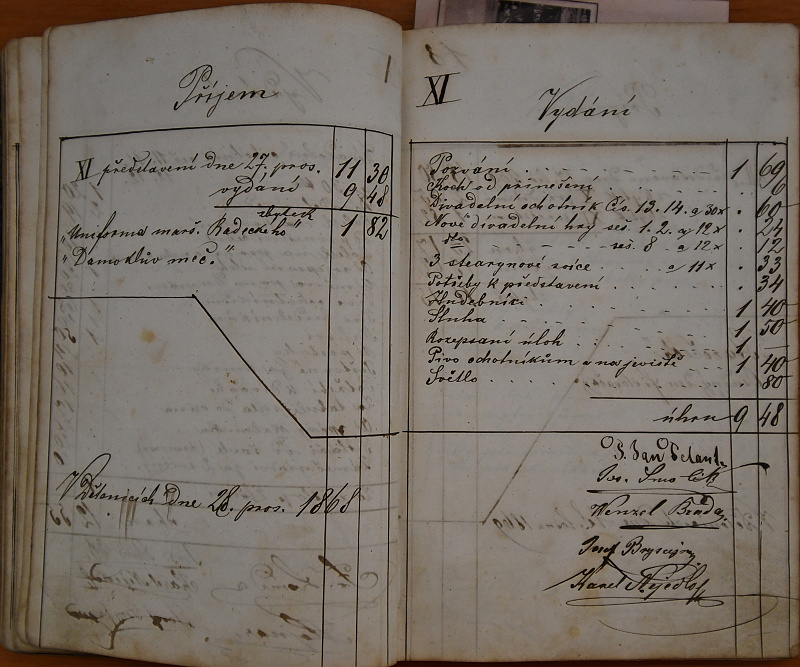 Příjem
XI představení dne 27. pros. 11 30
vydání 9 48
zbytek 1 82
„Uniforma marš. Radeckého"
„Damoklův meč."
V dne 28. pros. 1868
XI
Vydání
Pozvání 1 69
Koch od přinešení . 6
Divadelní ochotník čís. 13. 14. a 30x . 60
Nové divadelní hry seš. 1. 2. a 12x . 24
dto seš. 8 a 12x . 12
3 stearynové svíce a 11x . 33
Potřeby k představení . 34
Hudebníci 1 40
Sluha 1 50
Rozepsaní úloh 1 —
Pivo ochotníkům a na jeviště 1 40
Světlo . 80
úhrn 9 48
Jan
Jos.
Wenzel Brada
Josef
Karel